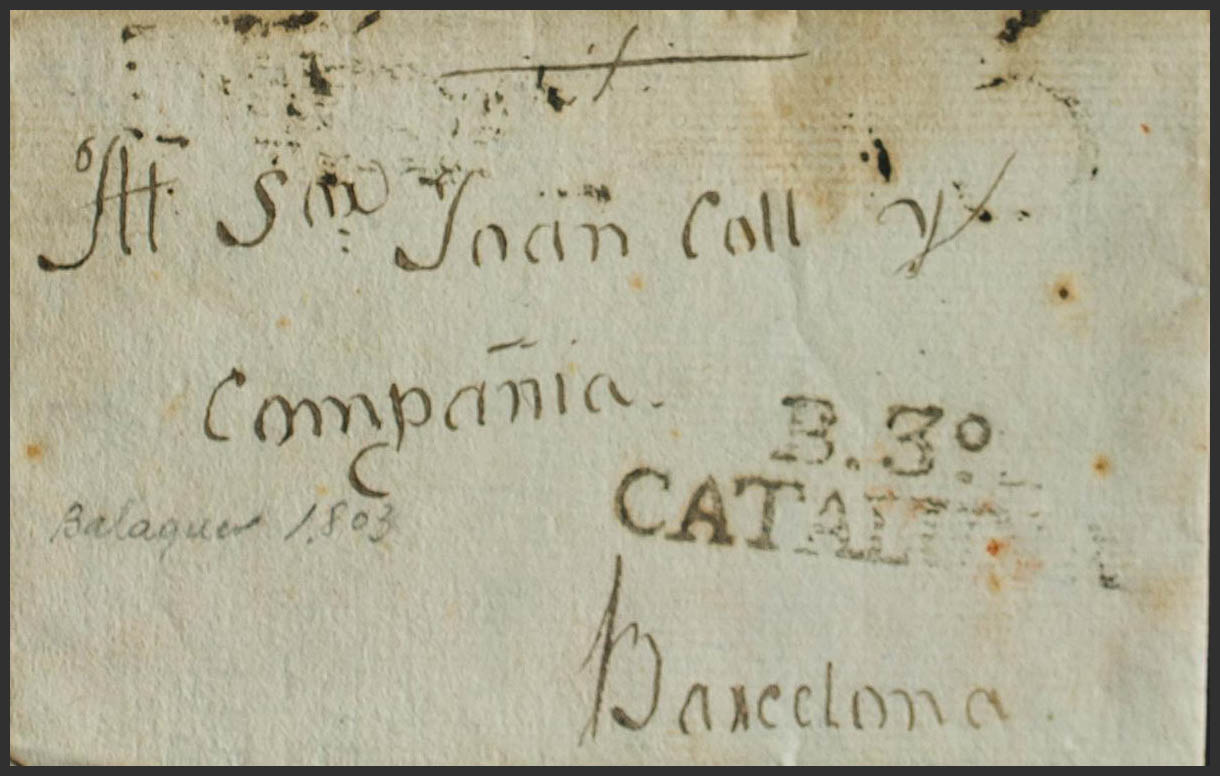 Sor Joan Coll y
Compañia.
B. 3º
CATAL
Balaguer 1.803
Barcelona